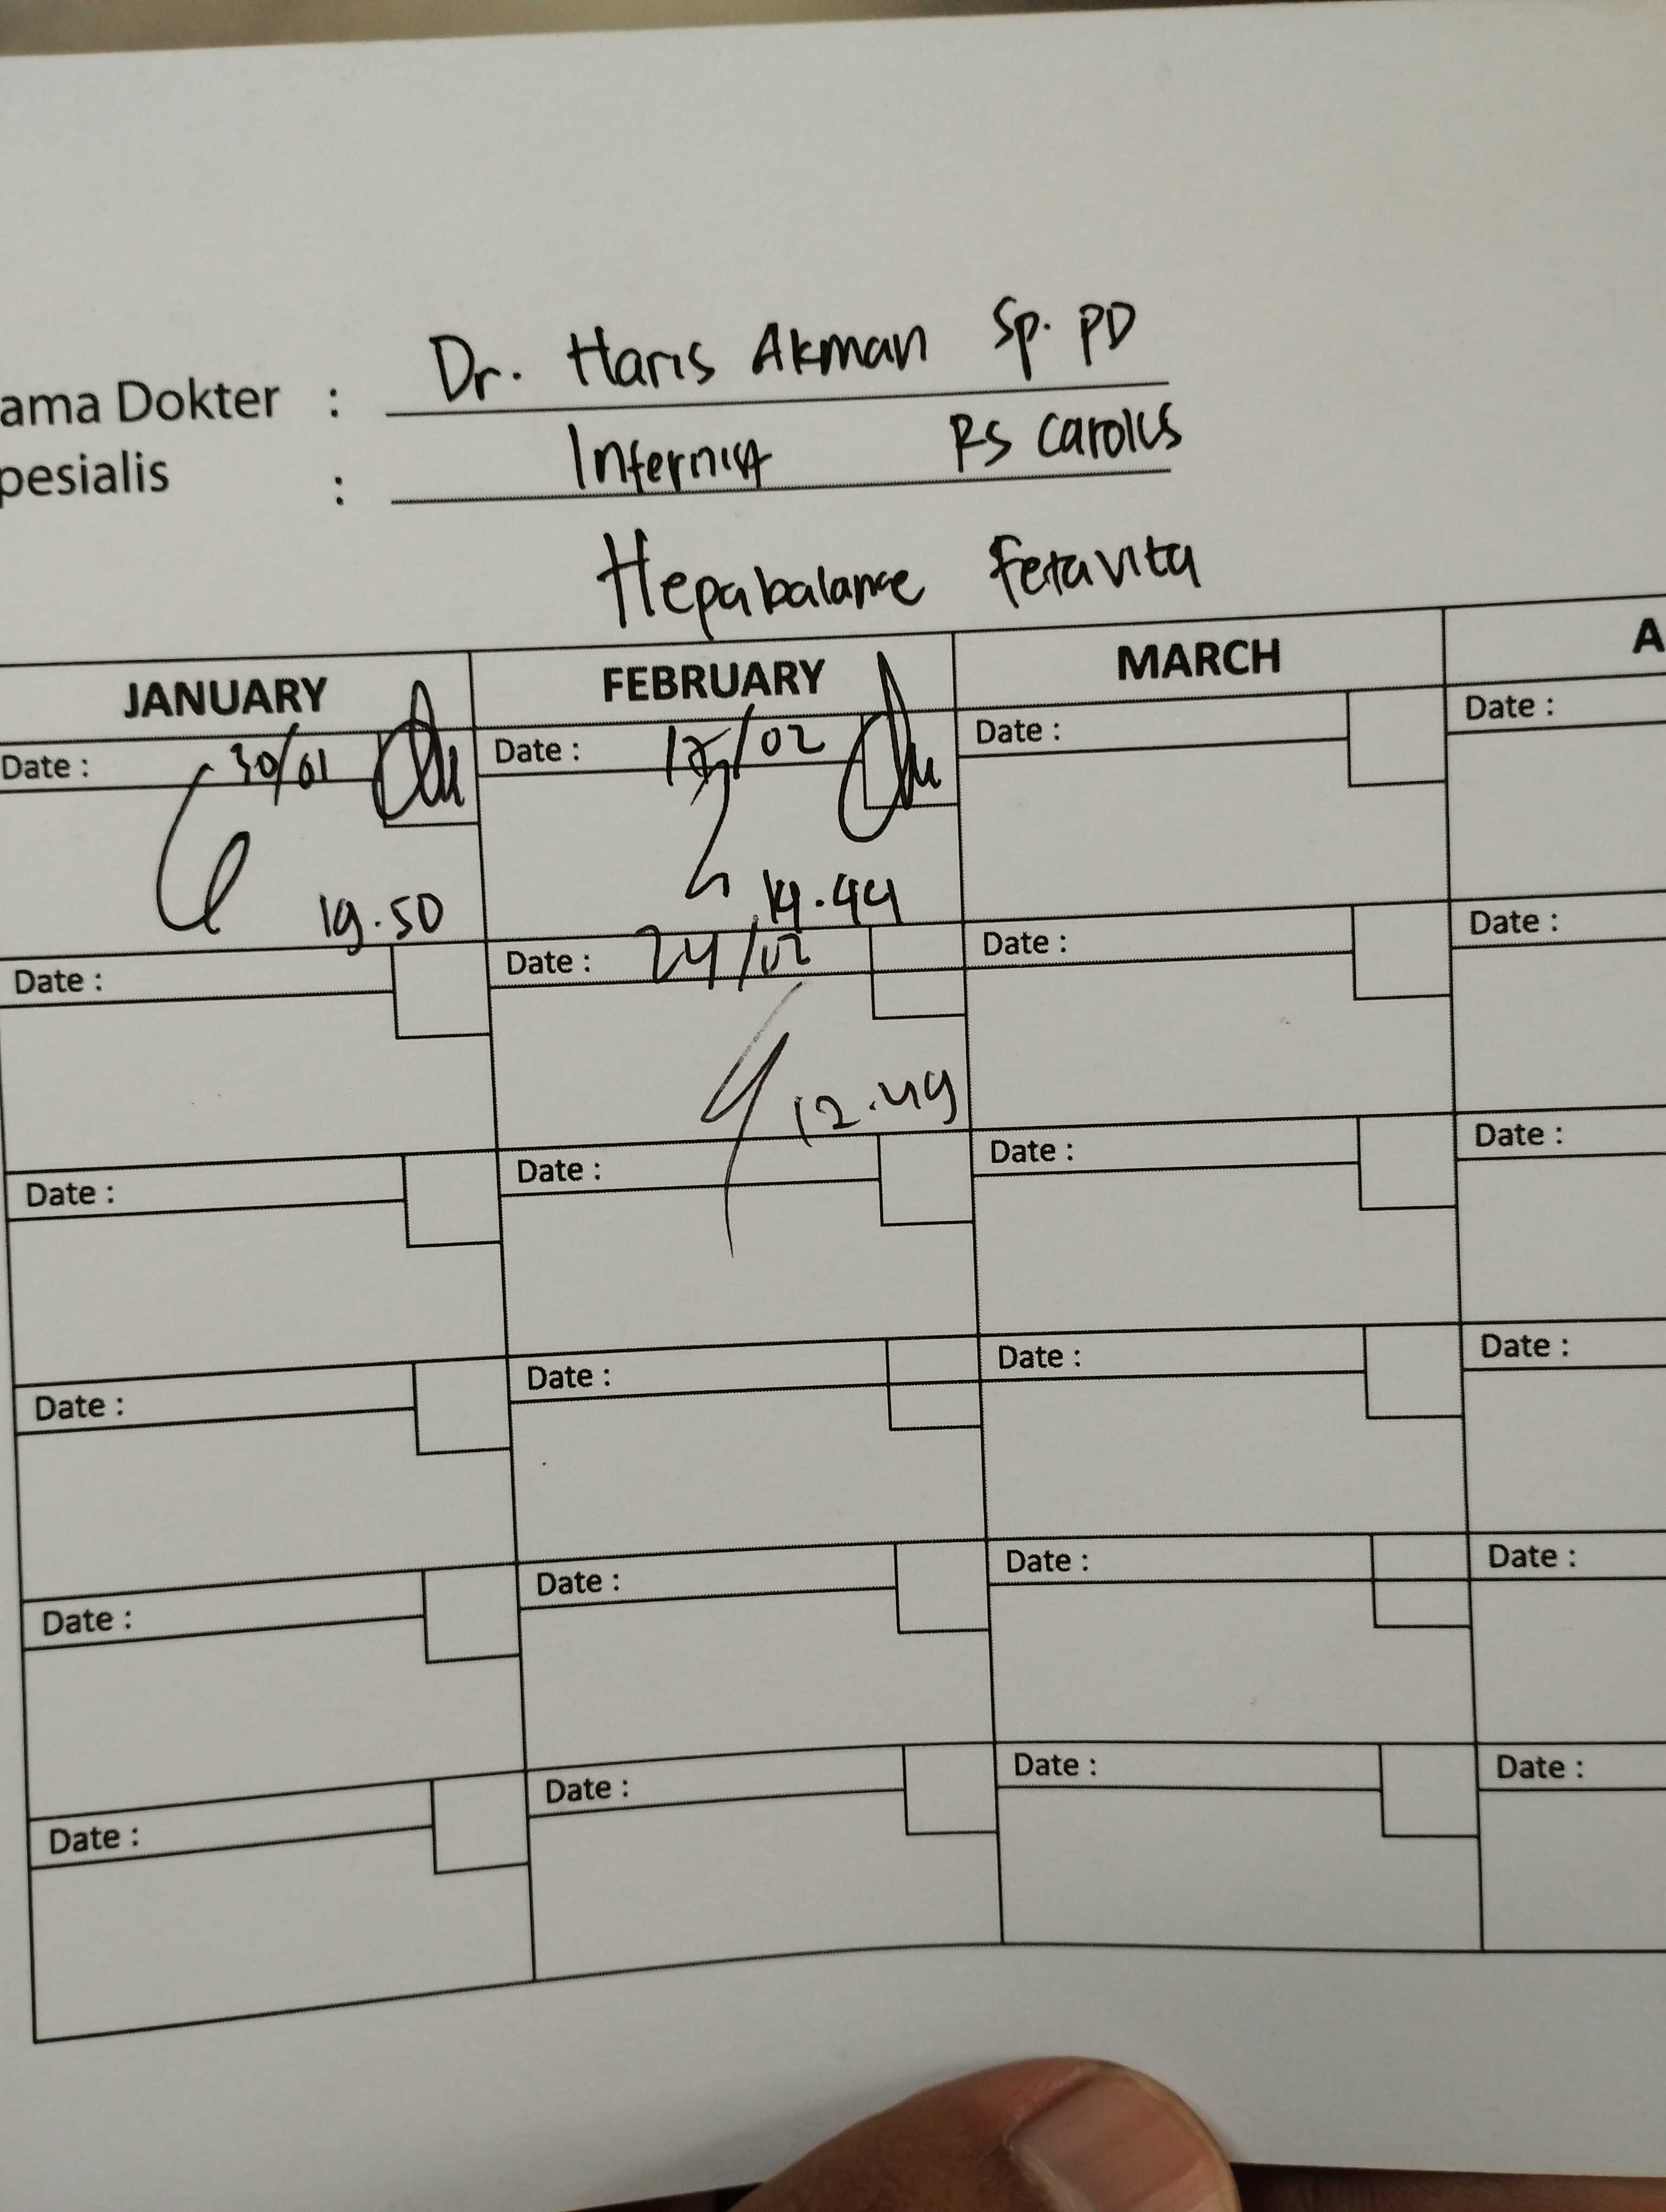 ama Dokter : Dr. Haris Akman Sp. PD
pesialis : Internist RS Carolus
Hepabalance Fetavita
JANUARY FEBRUARY MARCH A
Date : 30/01 Date : /02 Date : Date :
19.50 14.44
Date : Date : 24/02 Date : Date :
12.49
Date : Date : Date : Date :
Date : Date : Date : Date :
Date : Date : Date : Date :
Date : Date : Date : Date :